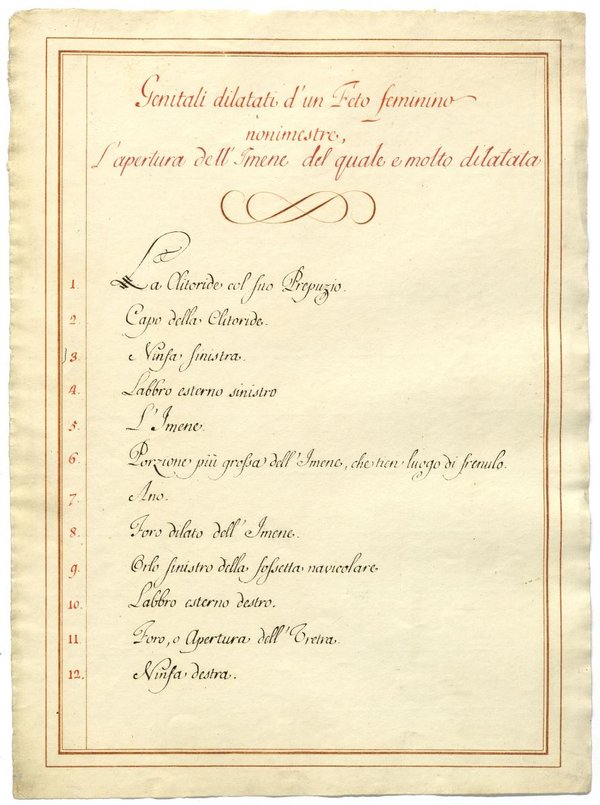 Genitali dilatati d'un Feto feminino
nonimestre,
L'apertura dell'Imene del quale e molto dilatata
1. La Clitoride col suo Prepuzio.
2. Capo della Clitoride.
3. Ninfa sinistra.
4. Labbro esterno sinistro
5. L'Imene.
6. Porzione più grossa dell'Imene, che tien luogo di frenulo.
7. Ano.
8. Foro dilato dell'Imene.
9. Orlo sinistro della fossetta navicolare
10. Labbro esterno destro.
11. Foro, o Apertura dell'Uretra.
12. Ninfa destra.